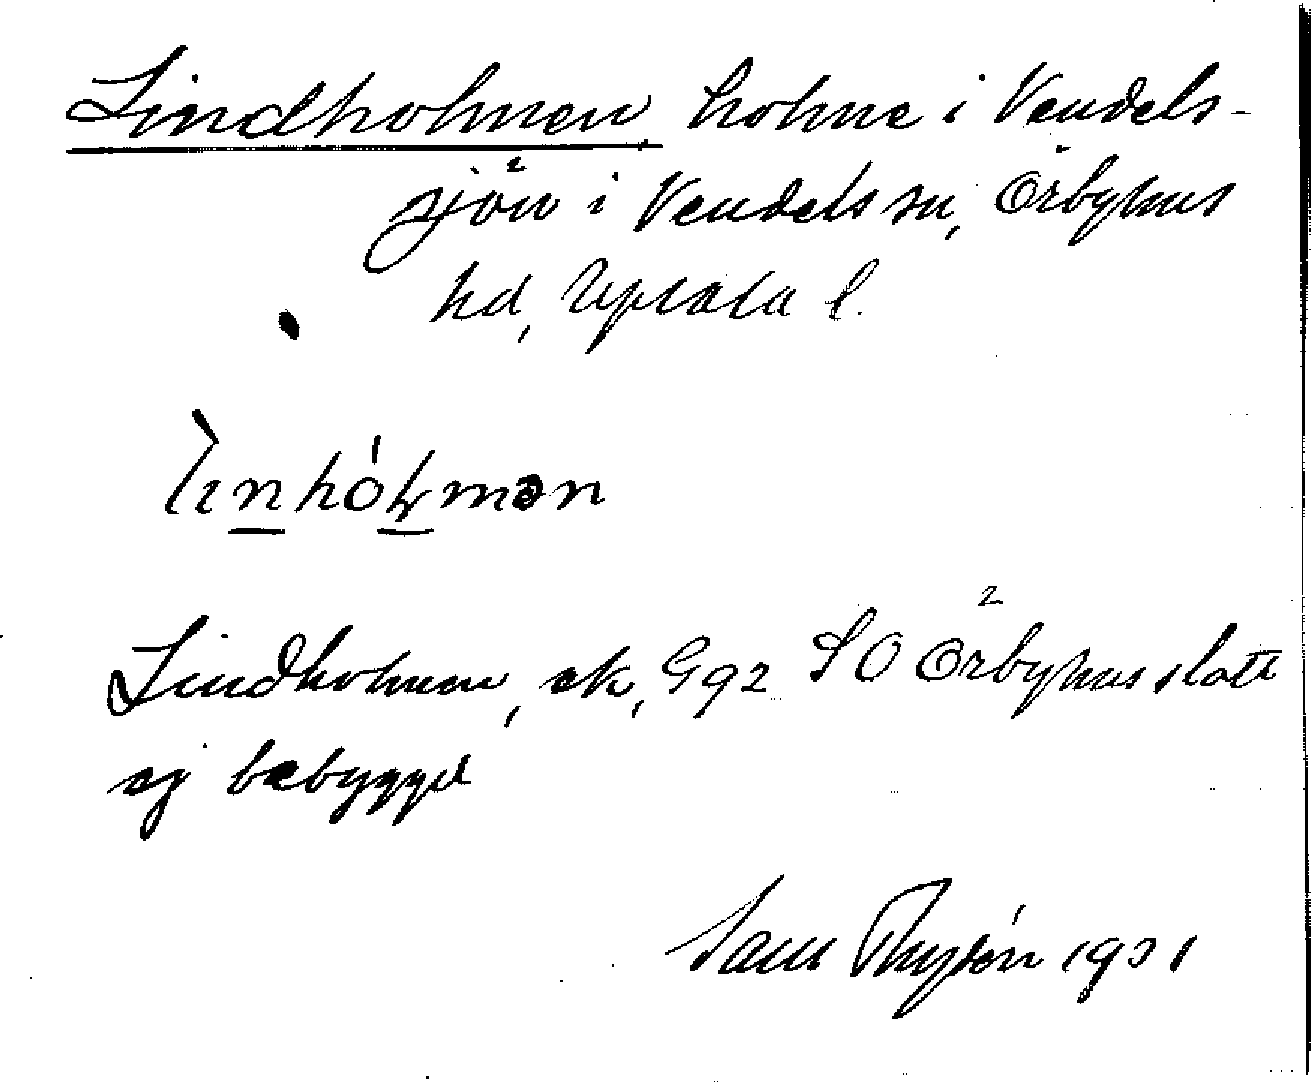 Lindholmen, holme i Vendels-
sjön i Vendels sn, Örbyhus
hd, Upsala l.
lìnhól̠mən
Lindholmen, ek, Gg2 SO Örbyhus slott
ej bebyggd
1931